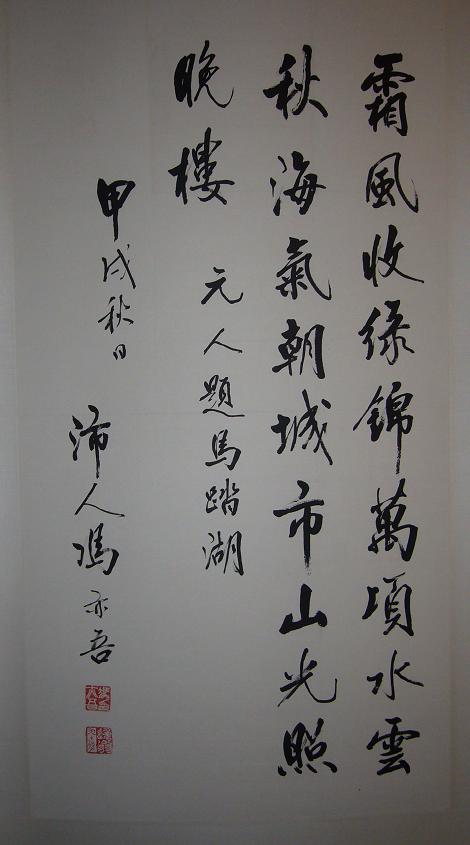 霜風收綠錦萬頃水雲
秋海氣朝城市山光照
晚樓
元人題馬踏湖
甲戌秋日
沛人馮亦吾